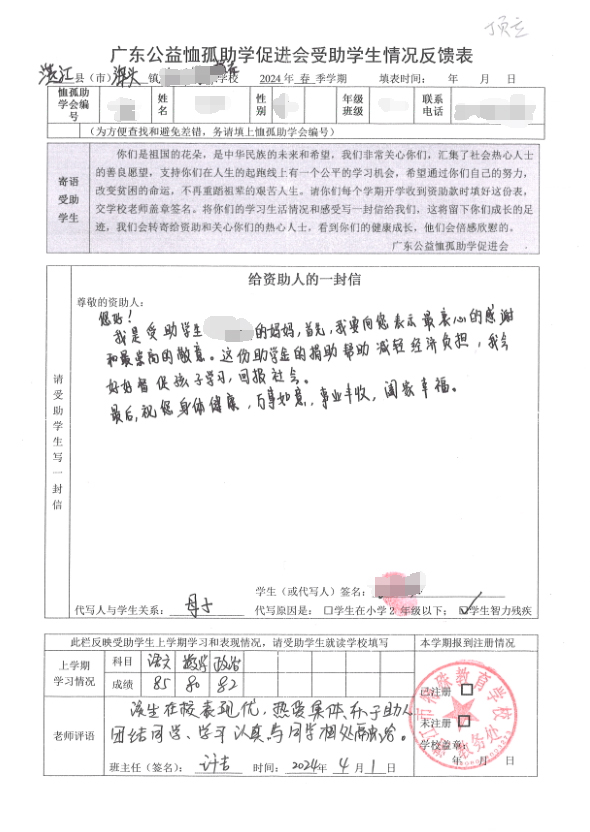 顶立
广东公益恤孤助学促进会受助学生情况反馈表
湛江县（市）坡头镇 学校 2024年春季学期 填表时间： 年 月 日
恤孤助学会编号 姓名 性别 年级班级 联系电话
（为方便查找和避免差错，务请填上恤孤助学会编号）
寄语受助学生
你们是祖国的花朵，是中华民族的未来和希望，我们非常关心你们，汇集了社会热心人士
的善良愿望，支持你们在人生的起跑线上有一个公平的学习机会，希望通过你们自己的努力，
改变贫困的命运，不再重蹈祖辈的艰苦人生。请你们每个学期开学收到资助款时填好这份表，
交学校老师盖章签名。将你们的学习生活情况和感受写一封信给我们，这将留下你们成长的足
迹，我们会转寄给资助和关心你们的热心人士，看到你们的健康成长，他们会倍感欣慰的。
广东公益恤孤助学促进会
请受助学生写一封信
给资助人的一封信
尊敬的资助人：
您好！
我是受助学生 的妈妈，首先，我要向您表示最衷心的感谢
和最崇高的敬意。这份助学金的捐助帮助减轻经济负担，我会
好好督促孩子学习，回报社会。
最后，祝您身体健康，万事如意，事业丰收，阖家幸福。
学生（或代写人）签名：
代写人与学生关系：母子 代写原因是：□学生在小学2年级以下；☑学生智力残疾
此栏反映受助学生上学期学习和表现情况，请受助学生就读学校填写 本学期报到注册情况
上学期学习情况
科目 语文 数学 政治
成绩 85 80 82
老师评语
该生在校表现优，热爱集体，乐于助人
团结同学、学习认真与同学相处融洽。
班主任（签名）： 时间：2024年4月1日
已注册 □
未注册 □
学校盖章：
年 月 日
湛江市特殊教育学校
教务处